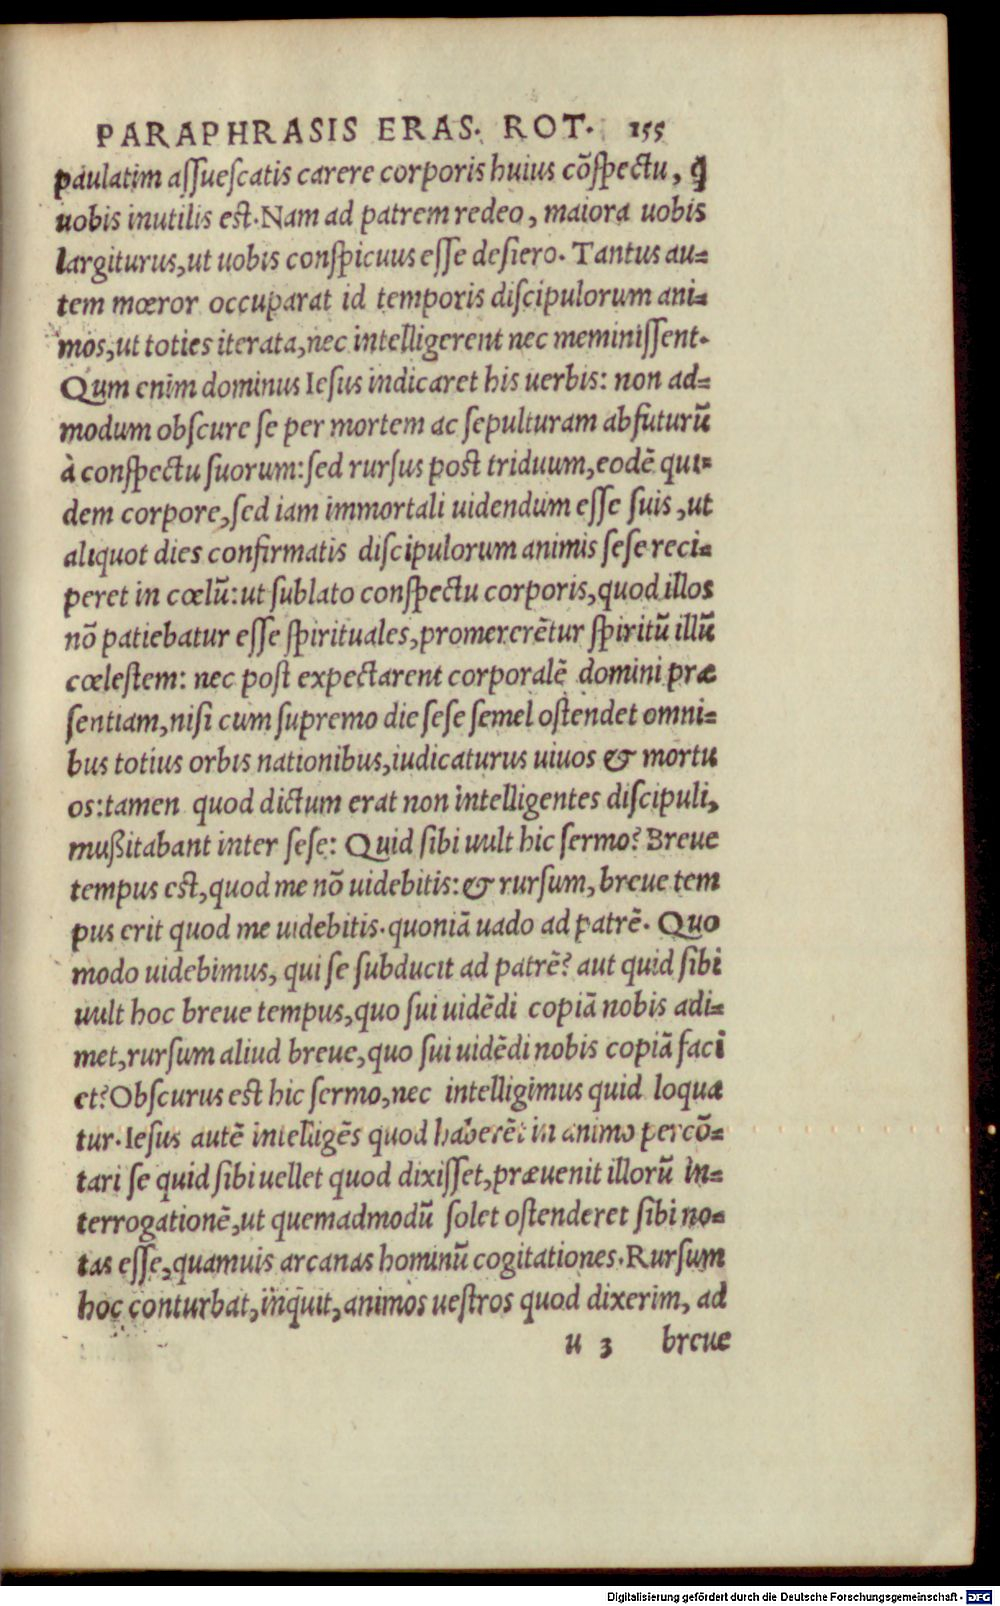 PARAPHRASIS ERAS. ROT. 155
paulatim aſſueſcatis carere corporis huius cõſpectu, ꝗ
uobis inutilis est. Nam ad patrem redeo, maiora uobis
largiturus, ut uobis conſpicuus eſſe deſiero. Tantus au=
tem mœror occuparat id temporis diſcipulorum ani=
mos, ut toties iterata, nec intelligerent nec meminiſſent.
Qum enim dominus Ieſus indicaret his uerbis: non ad=
modum obſcure ſe per mortem ac ſepulturam abfuturũ
à conſpectu ſuorum: ſed rurſus poſt triduum, eodẽ qui=
dem corpore, ſed iam immortali uidendum eſſe ſuis, ut
aliquot dies confirmatis diſcipulorum animis ſeſe reci=
peret in cœlũ: ut ſublato conſpectu corporis, quod illos
nõ patiebatur eſſe ſpirituales, promererẽtur ſpiritũ illũ
cœleſtem: nec poſt expectarent corporalẽ domini præ
ſentiam, niſi cum ſupremo die ſeſe ſemel oſtendet omni=
bus totius orbis nationibus, iudicaturus uiuos & mortu
os: tamen quod dictum erat non intelligentes diſcipuli,
mußitabant inter ſeſe: Quid ſibi uult hic ſermo? Breue
tempus eſt, quod me nõ uidebitis: & rurſum, breue tem
pus erit quod me uidebitis. quoniã uado ad patrẽ. Quo
modo uidebimus, qui ſe ſubducit ad patrẽ? aut quid ſibi
uult hoc breue tempus, quo ſui uidẽdi copiã nobis adi=
met, rurſum aliud breue, quo ſui uidẽdi nobis copiã faci
et? Obſcurus eſt hic ſermo, nec intelligimus quid loqua
tur. Ieſus autẽ intelligẽs quod haberẽt in animo percõ=
tari ſe quid ſibi uellet quod dixiſſet, præuenit illorũ in=
terrogationẽ, ut quemadmodũ ſolet oſtenderet ſibi no=
tas eſſe, quamuis arcanas hominũ cogitationes. Rurſum
hoc conturbat, inquit, animos ueſtros quod dixerim, ad
u 3 breue
Digitalisierung gefördert durch die Deutsche Forschungsgemeinschaft - DFG